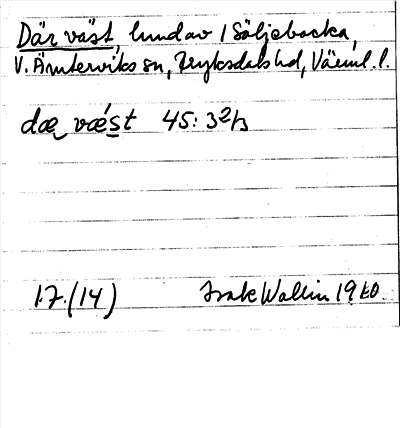 Där väst, lund av 1 Säljebacka,
V. Ämterviks sn, Fryksdals hd, Värml. l.
dæ vǽst 45: 3²/3
17. (14) Isak Wallin 19